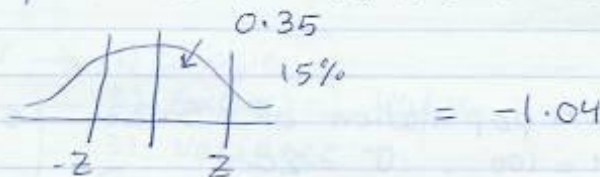 0.35
15%
= -1.04
-Z Z